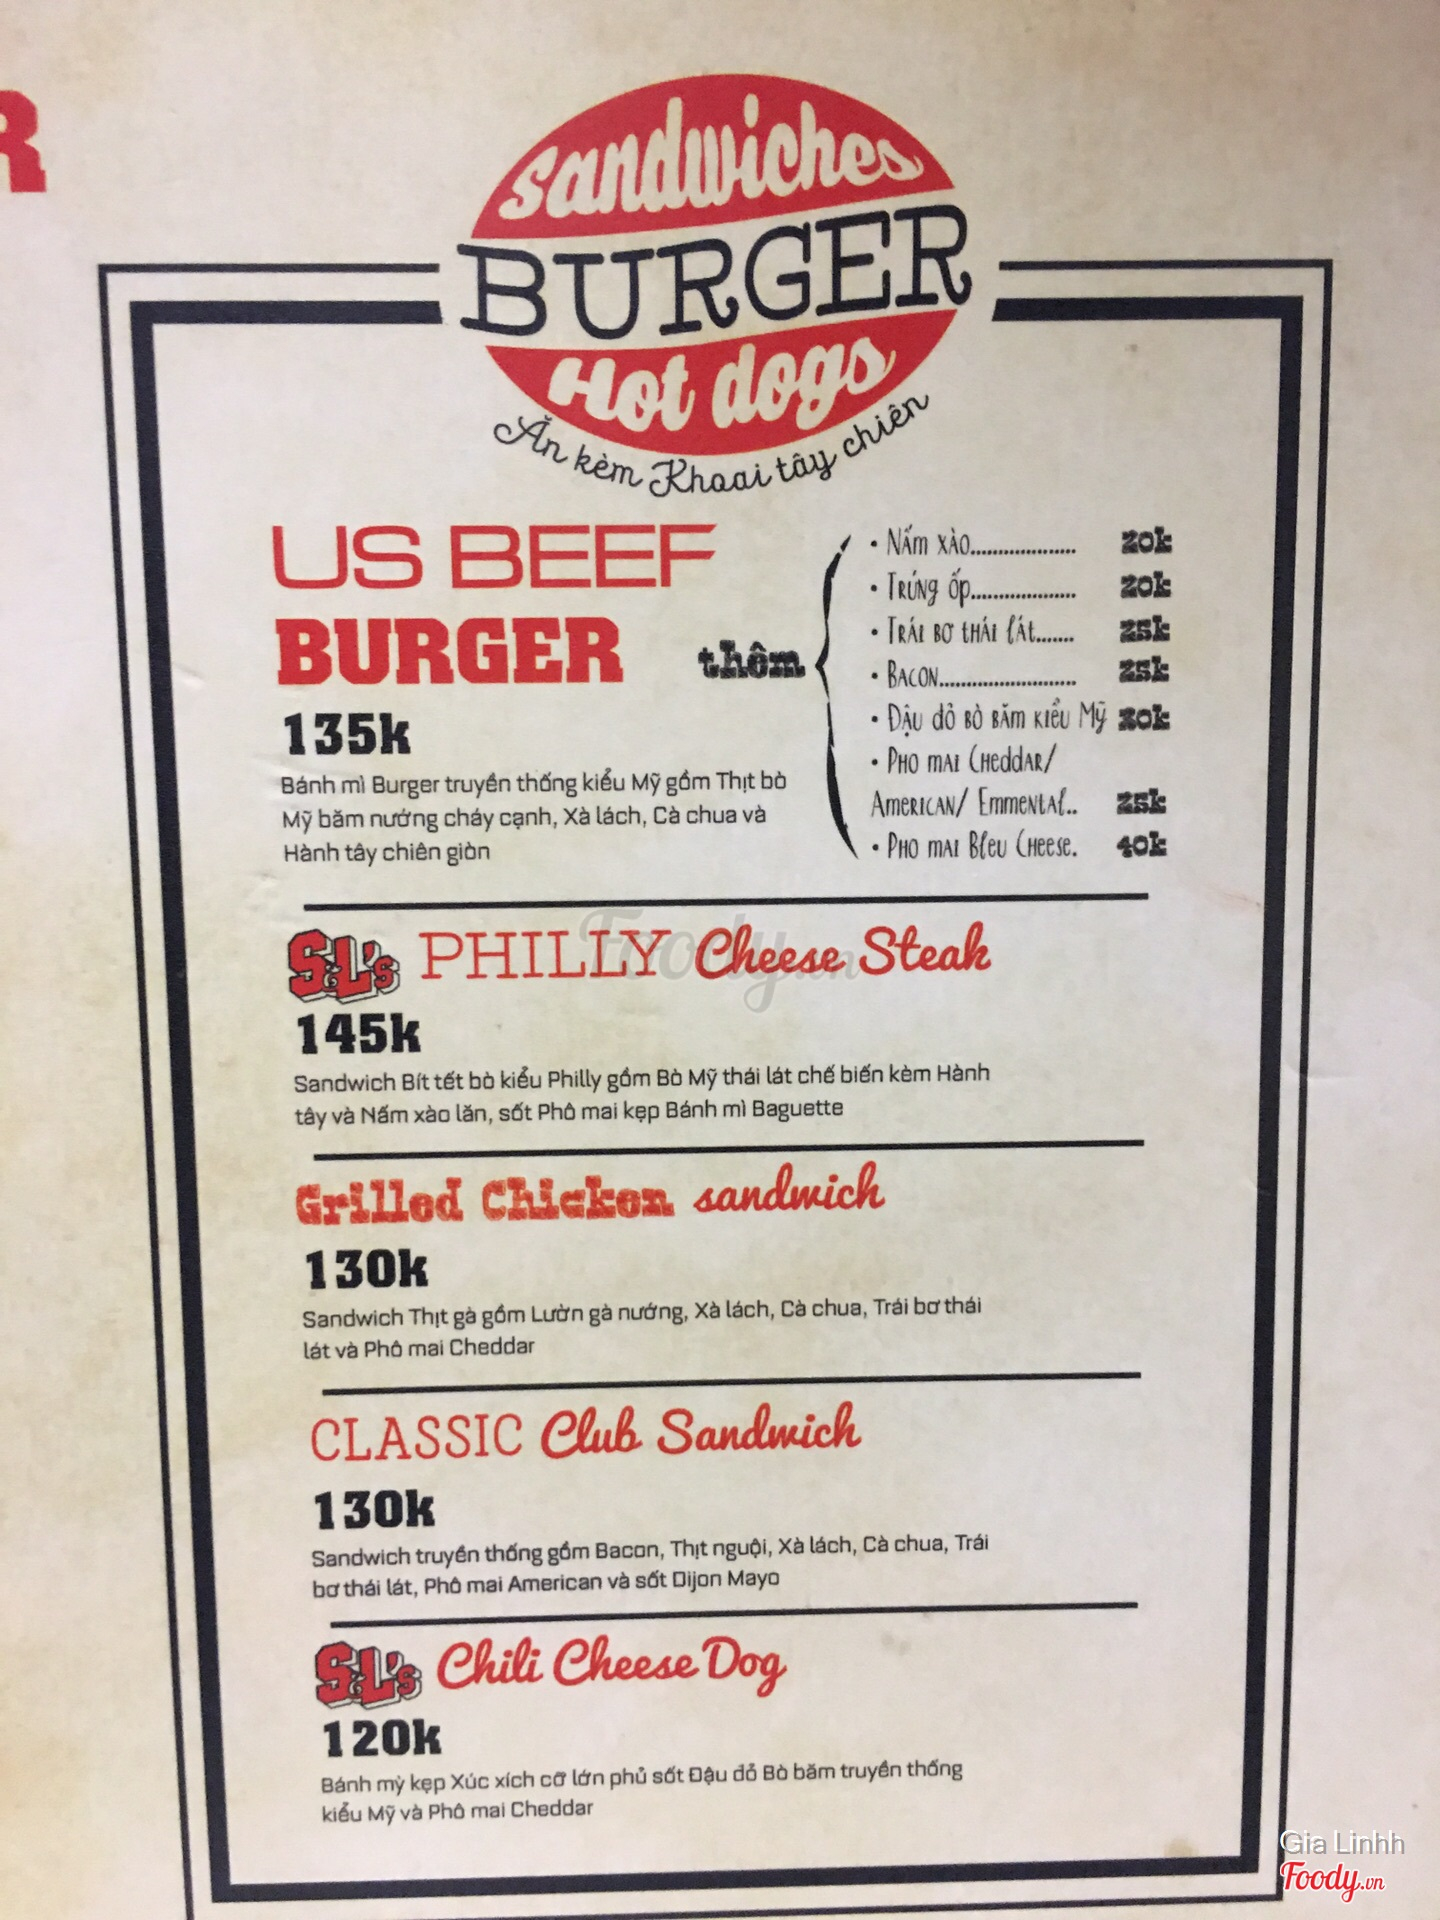 R
Sandwiches
BURGER
Hot dogs
Ăn kèm Khoai tây chiên
US BEEF
BURGER
135k
Bánh mì Burger truyền thống kiểu Mỹ gồm Thịt bò
Mỹ băm nướng cháy cạnh, Xà lách, Cà chua và
Hành tây chiên giòn
thêm
• Nấm xào.................... 20k
• Trứng ốp.................... 20k
• Trái bơ thái lát....... 25k
• Bacon.......................... 25k
• Đậu đỏ bò băm kiểu Mỹ 30k
• Pho mai Cheddar/
American/ Emmental.. 25k
• Pho mai Bleu Cheese. 40k
S&L's PHILLY Cheese Steak
145k
Sandwich Bít tết bò kiểu Philly gồm Bò Mỹ thái lát chế biến kèm Hành
tây và Nấm xào lăn, sốt Phô mai kẹp Bánh mì Baguette
Grilled Chicken sandwich
130k
Sandwich Thịt gà gồm Lườn gà nướng, Xà lách, Cà chua, Trái bơ thái
lát và Phô mai Cheddar
CLASSIC Club Sandwich
130k
Sandwich truyền thống gồm Bacon, Thịt nguội, Xà lách, Cà chua, Trái
bơ thái lát, Phô mai American và sốt Dijon Mayo
S&L's Chili Cheese Dog
120k
Bánh mỳ kẹp Xúc xích cỡ lớn phủ sốt Đậu đỏ Bò băm truyền thống
kiểu Mỹ và Phô mai Cheddar
Foody.vn
Gia Linhh
Foody.vn